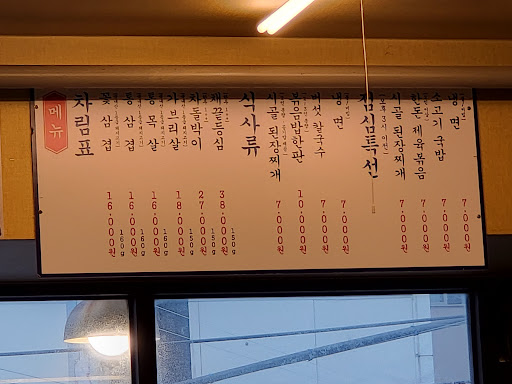 메뉴
차림표
꽃삼겹 16,000원 160g
통삼겹 16,000원 160g
통목살 16,000원 160g
가브리살 18,000원 150g
차돌박이 27,000원 150g
채끝등심 38,000원 150g
식사류
시골 된장찌개 7,000원
볶음밥한판 10,000원
버섯 칼국수 7,000원
냉면 7,000원
점심특선
시골 된장찌개 7,000원
한돈 제육볶음 7,000원
소고기 국밥 7,000원
냉면 7,000원